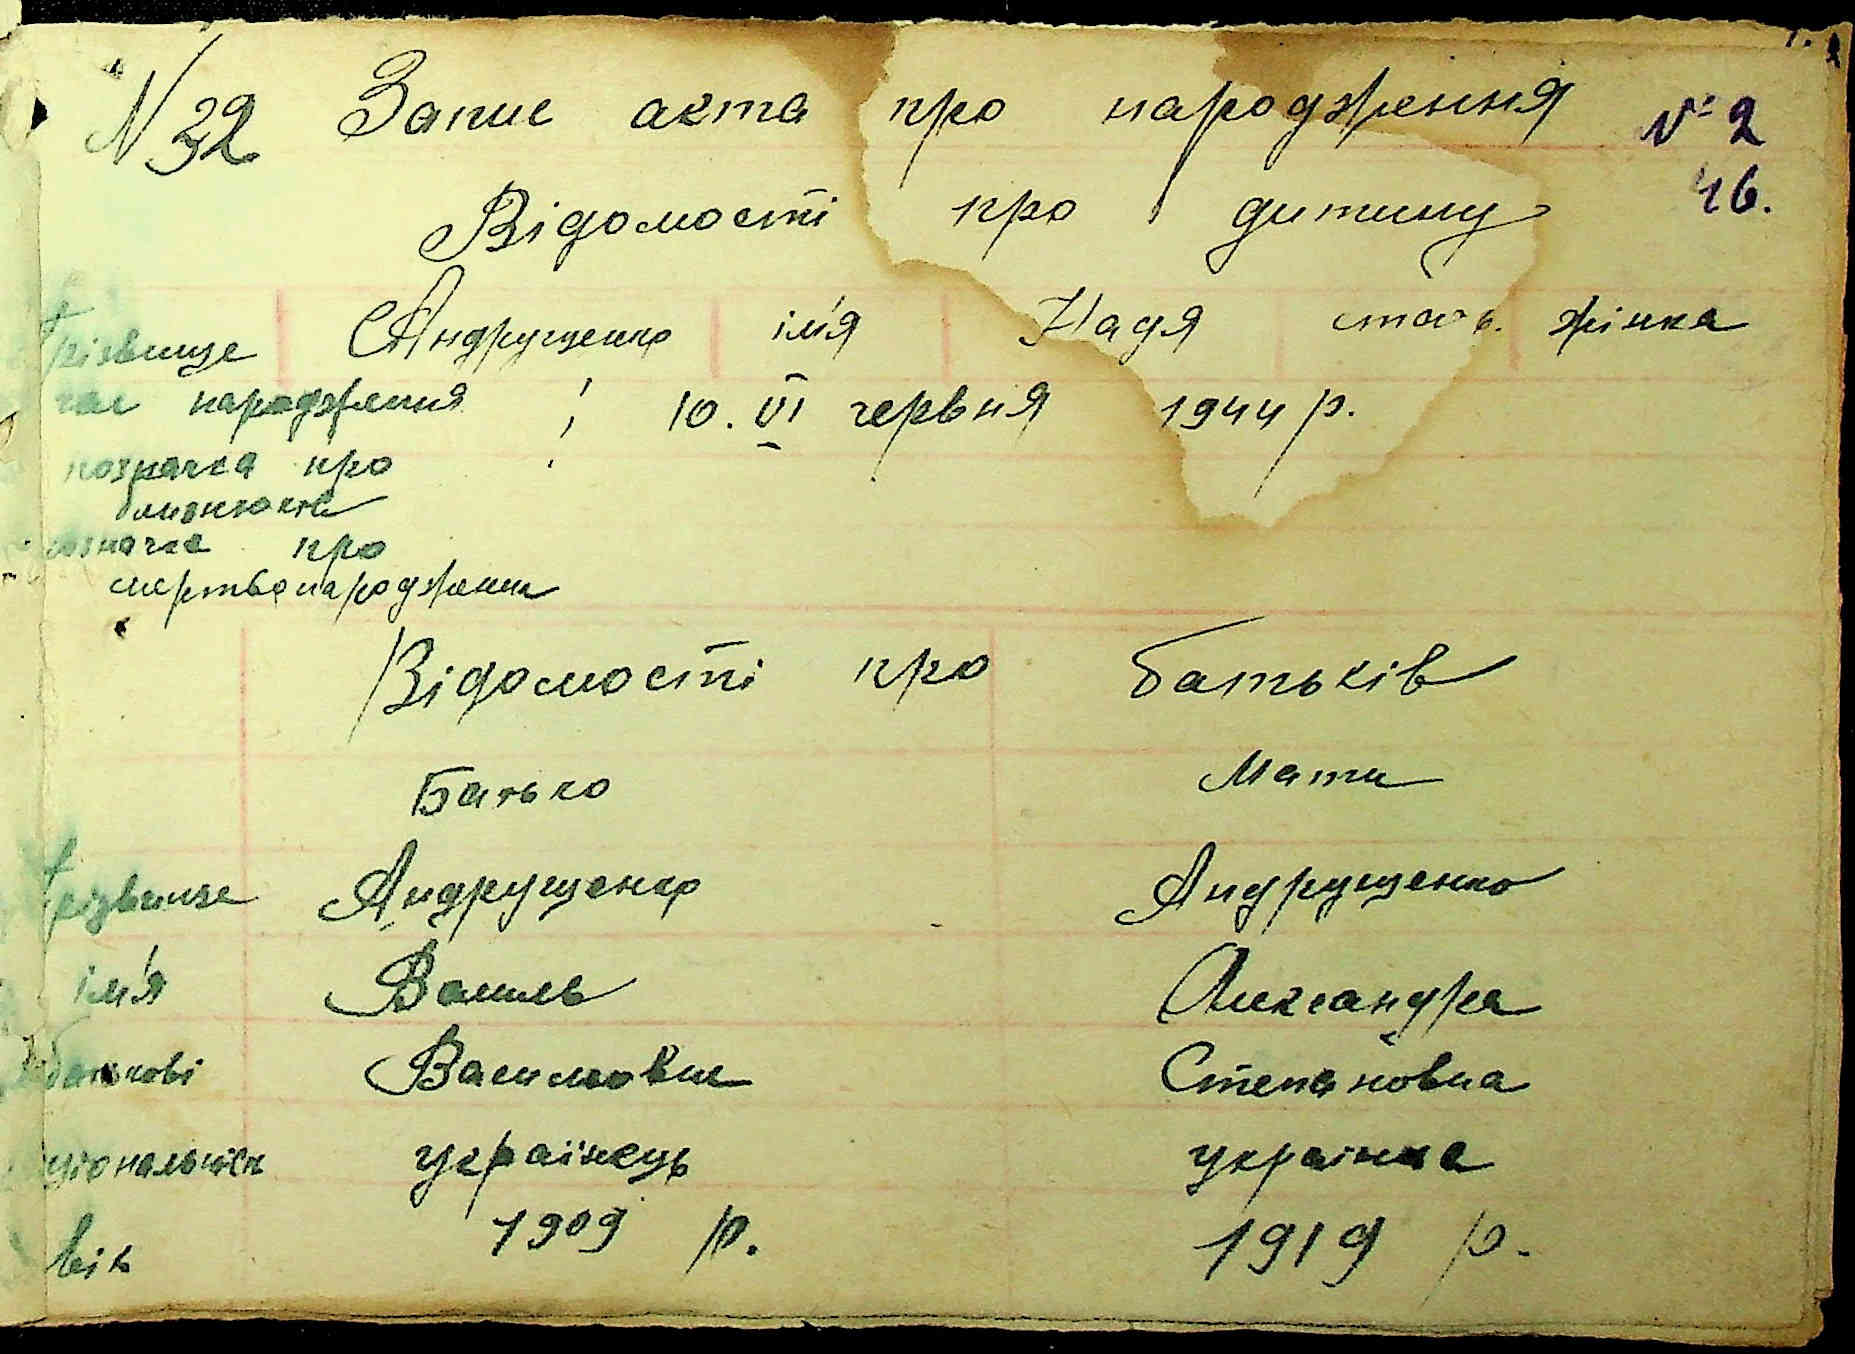 N 32 Запис акта про народження № 2
46.
Відомості про дитину
Прізвище Андрущенко ім'я Надя стать. жінка
час народження 10. VI червня 1944 р.
позначка про
близнюків
позначка про
смертвонароджених
Відомості про батьків
Батько Мати
Прізвище Андрущенко Андрущенко
ім'я Василь Александра
по батькові Васильович Степановна
національність українець українка
1909 р. 1919 р.
вік